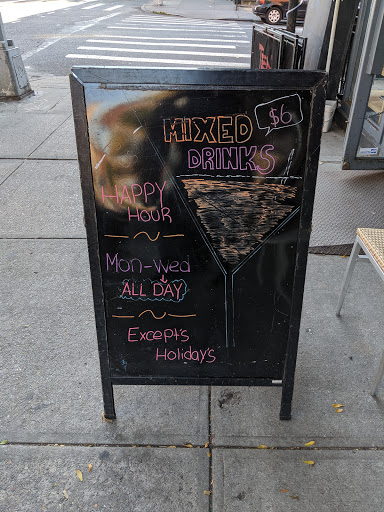 MIXED $6
DRINKS
HAPPY
HOUR
Mon-Wed
ALL DAY
Excepts
Holiday's